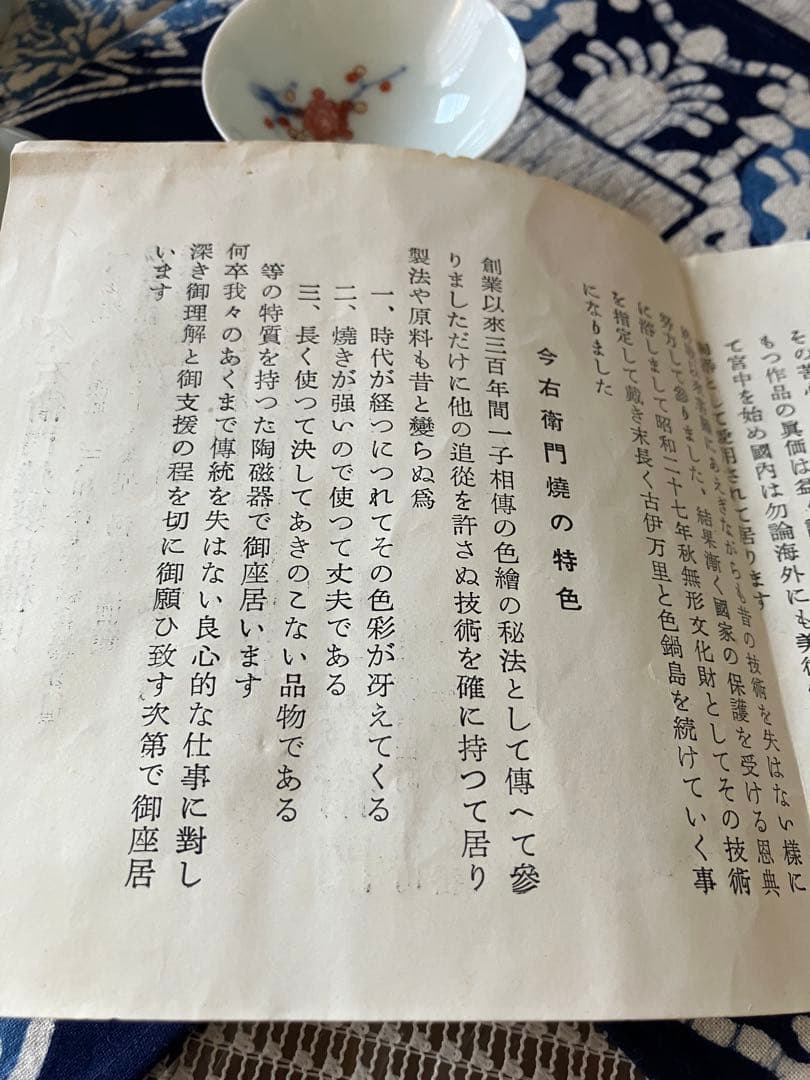 その苦心
もつ作品の真価は益
て宮中を始め國内は勿論海外にも美術
として愛用されて居ります
にあえぎながらも昔の技術を失はない様に
努力して参りました、結果漸く國家の保護を受ける恩典
に浴しまして昭和二十七年秋無形文化財としてその技術
を指定して戴き末長く古伊万里と色鍋島を続けていく事
になりました
今右衛門燒の特色
創業以來三百年間一子相傳の色繪の秘法として傳へて參
りましただけに他の追從を許さぬ技術を確に持つて居り
製法や原料も昔と變らぬ爲
一、時代が経つにつれてその色彩が冴えてくる
二、燒きが强いので使つて丈夫である
三、長く使つて決してあきのこない品物である
等の特質を持つた陶磁器で御座居います
何卒我々のあくまで傳統を失はない良心的な仕事に對し
深き御理解と御支援の程を切に御願ひ致す次第で御座居
います